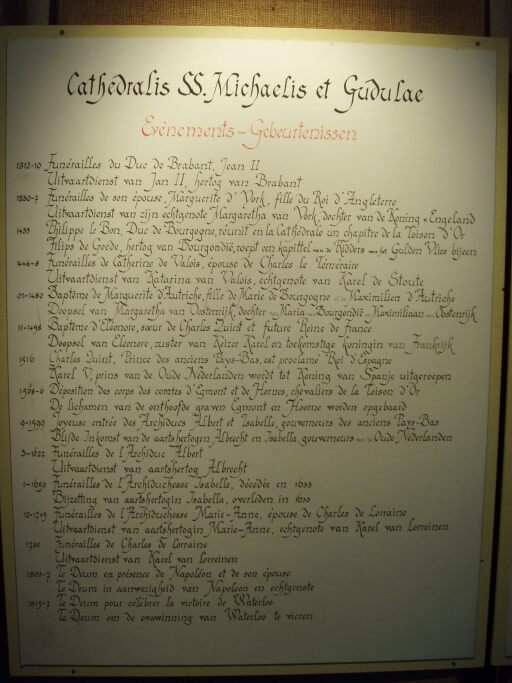 Cathedralis SS. Michaelis et Gudulae
Evénements - Gebeurtenissen
1312-10 Funérailles du Duc de Brabant, Jean II
Uitvaartdienst van Jan II, hertog van Brabant
1330-7 Funérailles de son épouse, Marguerite d'York, fille du Roi d'Angleterre
Uitvaartdienst van zijn echtgenote Margaretha van York, dochter van de Koning v. Engeland
1435 Philippe le Bon, Duc de Bourgogne, réunit en la Cathédrale un chapitre de la Toison d'Or
Filips de Goede, hertog van Bourgondië, roept een kapittel van de Ridders van het Gulden Vlies bijeen
1446-8 Funérailles de Catherine de Valois, épouse de Charles le Téméraire
Uitvaartdienst van Katarina van Valois, echtgenote van Karel de Stoute
01-1480 Baptême de Marguerite d'Autriche, fille de Marie de Bourgogne et de Maximilien d'Autriche
Doopsel van Margaretha van Oostenrijk, dochter van Maria van Bourgondië en Maximiliaan van Oostenrijk
11-1498 Baptême d'Eleonore, sœur de Charles Quint et future Reine de France
Doopsel van Eleonore, zuster van Keizer Karel en toekomstige koningin van Frankrijk
1516 Charles Quint, Prince des anciens Pays-Bas, est proclamé Roi d'Espagne
Karel V, prins van de Oude Nederlanden wordt tot Koning van Spanje uitgeroepen
Déposition des corps des comtes d'Egmont et de Hornes, chevaliers de la Toison d'Or
De lichamen van de onthoofde graven Egmont en Hoorne worden opgebaard
9-1599 Joyeuse entrée des Archiducs Albert et Isabelle, gouverneurs des anciens Pays-Bas
Blijde Inkomst van de aartshertogen Albrecht en Isabella, gouverneurs van de Oude Nederlanden
3-1622 Funérailles de l'Archiduc Albert
Uitvaartdienst van aartshertog Albrecht
1-1650 Funérailles de l'Archiduchesse Isabelle, décédée en 1633
Bijzetting van aartshertogin Isabella, overleden in 1633
12-1749 Funérailles de l'Archiduchesse Marie-Anne, épouse de Charles de Lorraine
Uitvaartdienst van aartshertogin Marie-Anne, echtgenote van Karel van Lorreinen
1780 Funérailles de Charles de Lorraine
Uitvaartdienst van Karel van Lorreinen
1803-7 Te Deum en présence de Napoléon et de son épouse
Te Deum in aanwezigheid van Napoleon en echtgenote
1815-7 Te Deum pour célébrer la victoire de Waterloo
Te Deum om de overwinning van Waterloo te vieren